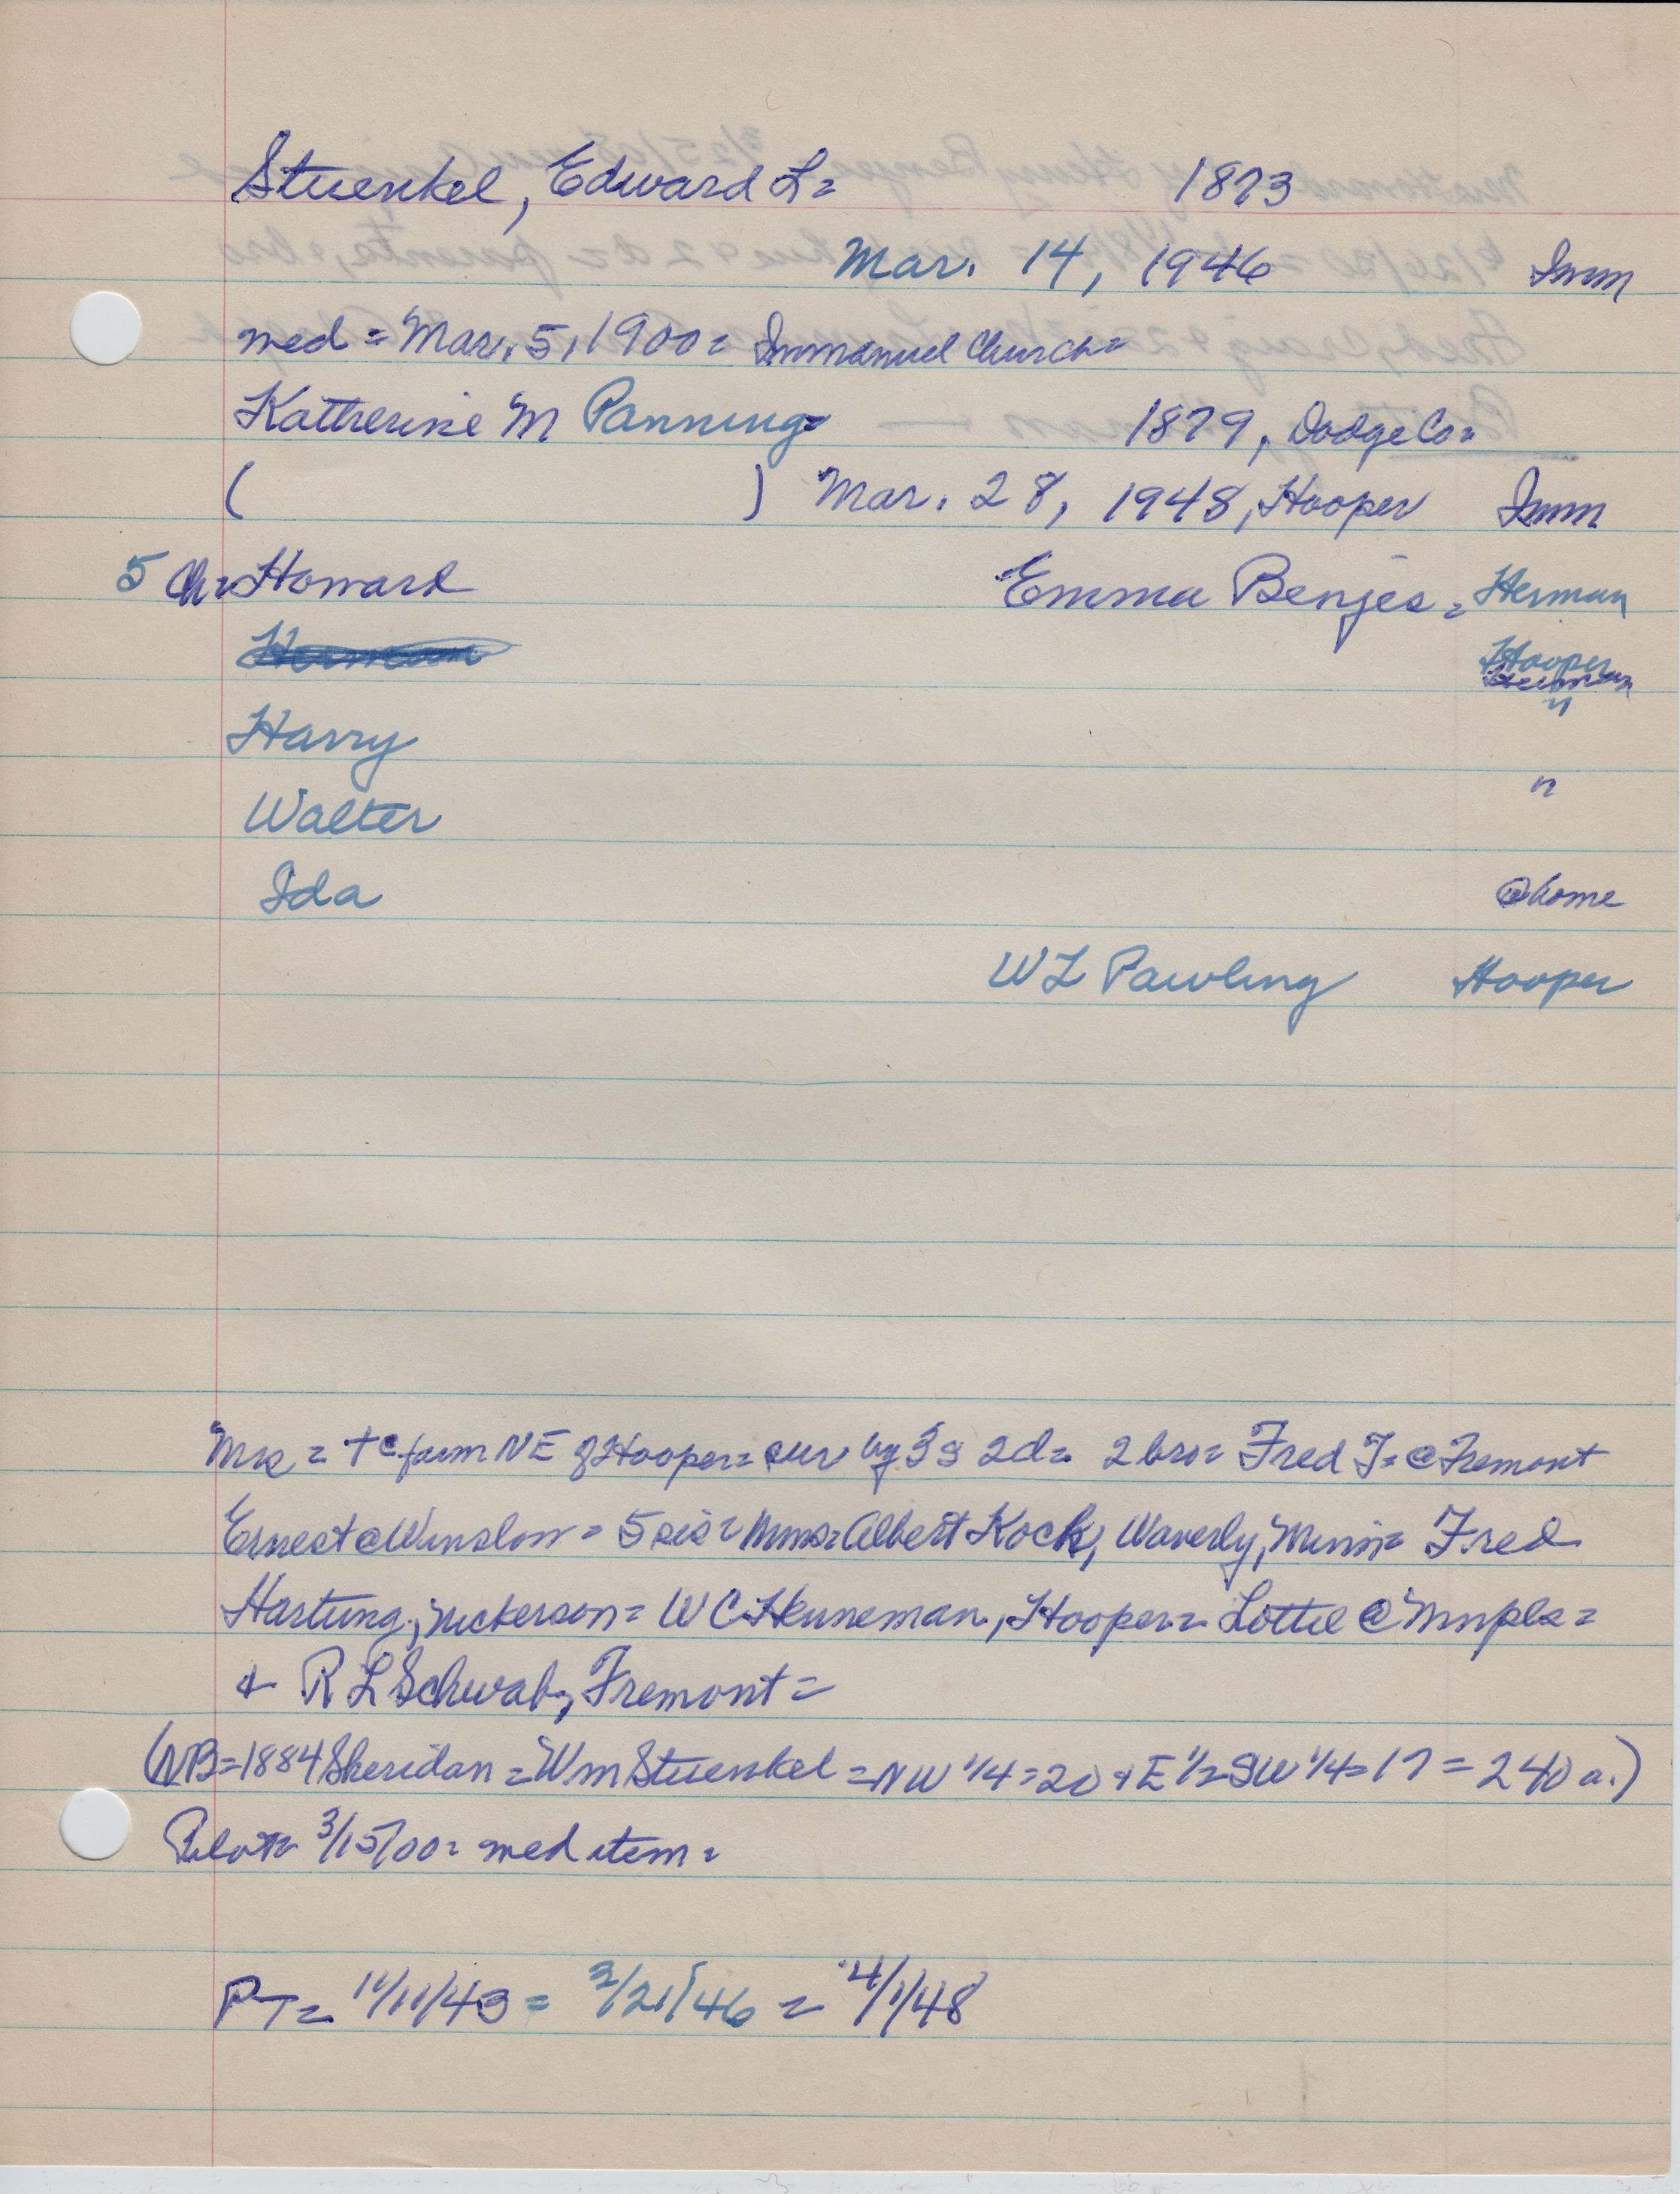 Stuenkel, Edward L= 1873
Mar. 14, 1946 Imm
med = Mar. 5, 1900 = Immanuel Church =
Katherine M Panning= 1879, Dodge Co=
( ) Mar. 28, 1948, Hooper Imm
5 Ch= Howard Emma Benjes = Herman
Herman Hooper
Harry "
Walter "
Ida @ home
W L Pawling Hooper
Mrs = + @ farm NE of Hooper = sur by 3 s 2d = 2 bro = Fred J = @ Fremont
Ernest @ Winslow = 5 sis = Mmes = Albert Kock, Waverly, Minn = Fred
Hartung, Nickerson = W C Heuneman, Hooper = Lottie @ Mnpls =
+ R L Schwab, Fremont =
(NB = 1884 Sheridan = Wm Stuenkel = NW 1/4 = 20 + E 1/2 SW 1/4 = 17 = 240 a.)
Pilot = 3/15/00 = med item =
PT = 11/11/43 = 3/21/46 = 4/1/48